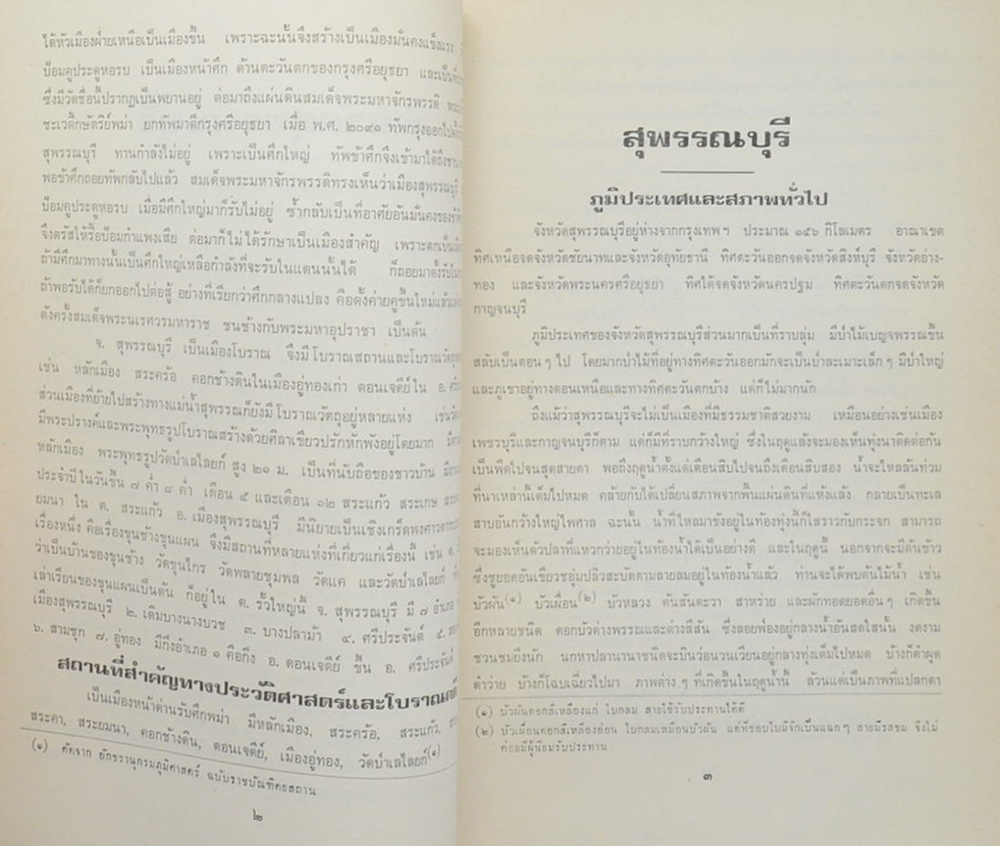 ได้หัวเมืองฝ่ายเหนือเป็นเมืองขึ้น เพราะฉะนั้นจึงสร้างเป็นเมืองมั่นคงแข็งแรง
ป้อมคูประตูหอรบ เป็นเมืองหน้าศึก ด้านตะวันตกของกรุงศรีอยุธยา
ซึ่งมีวัดชื่อนี้ปรากฏเป็นพยานอยู่ ต่อมาถึงแผ่นดินสมเด็จพระมหาจักรพรรดิ
ชะเวตี้กษัตริย์พม่า ยกทัพมาตีกรุงศรีอยุธยา เมื่อ พ.ศ. ๒๐๙๑ ทัพกรุงออกไป
สุพรรณบุรี ทานกำลังไม่อยู่ เพราะเป็นศึกใหญ่ ทัพข้าศึกจึงเข้ามาได้ถึง
พอข้าศึกถอยทัพกลับไปแล้ว สมเด็จพระมหาจักรพรรดิทรงเห็นว่าเมืองสุพรรณบุรี
ป้อมคูประตูหอรบ เมื่อมีศึกใหญ่มาก็รับไม่อยู่ ซ้ำกลับเป็นที่อาศัยอันมั่นคงของ
จึงตรัสให้รื้อป้อมกำแพงเสีย ต่อมาก็ไม่ได้รักษาเป็นเมืองสำคัญ
ถ้ามีศึกมาทางนั้นเป็นศึกใหญ่เหลือกำลังที่จะรับในแดนนั้นได้ ก็ถอยมาตั้งรับ
ถ้าพอรับได้ก็ยกออกไปต่อสู้ อย่างที่เรียกว่าศึกกลางแปลง คือตั้งค่ายคูขึ้นใหม่
ดังครั้งสมเด็จพระนเรศวรมหาราช ชนช้างกับพระมหาอุปราชา เป็นต้น
จ. สุพรรณบุรี เป็นเมืองโบราณ จึงมีโบราณสถานและโบราณวัตถุ
เช่น หลักเมือง สระคร้อ คอกช้างดินในเมืองอู่ทองเก่า ดอนเจดีย์ใน อ.
ส่วนเมืองที่ย้ายไปสร้างทางแม่น้ำสุพรรณก็ยังมีโบราณวัตถุอยู่หลายแห่ง
มีพระปรางค์และพระพุทธรูปโบราณสร้างด้วยศิลาเขียวปรักหักพังอยู่โดยมาก
หลักเมือง พระพุทธรูปวัดป่าเลไลยก์ สูง ๒๑ ม. เป็นที่นับถือของชาวบ้าน
ประจำปีในวันขึ้น ๗ ค่ำ ๘ ค่ำ เดือน ๕ และเดือน ๑๒ สระแก้ว สระเกษ
ยมนา ใน ต. สระแก้ว อ. เมืองสุพรรณบุรี มีนิยายเป็นเชิงเกร็ดพงศาวดาร
เรื่องหนึ่ง คือเรื่องขุนช้างขุนแผน จึงมีสถานที่หลายแห่งที่เกี่ยวแก่เรื่องนี้ เช่น
ว่าเป็นบ้านของขุนช้าง วัดขุนไกร วัดพลายชุมพล วัดแค และวัดป่าเลไลยก์
เล่าเรียนของขุนแผนเป็นต้น ก็อยู่ใน ต. รั้วใหญ่นี้ จ. สุพรรณบุรี มี ๗ อำเภอ
เมืองสุพรรณบุรี ๒. เดิมบางนางบวช ๓. บางปลาม้า ๔. ศรีประจันต์ ๕.
๖. สามชุก ๗. อู่ทอง มีกิ่งอำเภอ ๑ คือกิ่ง อ. ดอนเจดีย์ ขึ้น อ. ศรีประจันต์
สถานที่สำคัญทางประวัติศาสตร์และโบราณคดี
เป็นเมืองหน้าด่านรับศึกพม่า มีหลักเมือง, สระคร้อ, สระแก้ว,
สระคา, สระยมนา, คอกช้างดิน, ดอนเจดีย์, เมืองอู่ทอง, วัดป่าเลไลยก์(๑)
(๑) คัดจาก อักขรานุกรมภูมิศาสตร์ ฉบับราชบัณฑิตยสถาน
๒
สุพรรณบุรี
ภูมิประเทศและสภาพทั่วไป
จังหวัดสุพรรณบุรีอยู่ห่างจากกรุงเทพฯ ประมาณ ๑๕๖ กิโลเมตร อาณาเขต
ทิศเหนือจดจังหวัดชัยนาทและจังหวัดอุทัยธานี ทิศตะวันออกจดจังหวัดสิงห์บุรี จังหวัดอ่าง-
ทอง และจังหวัดพระนครศรีอยุธยา ทิศใต้จดจังหวัดนครปฐม ทิศตะวันตกจดจังหวัด
กาญจนบุรี
ภูมิประเทศของจังหวัดสุพรรณบุรีส่วนมากเป็นที่ราบลุ่ม มีป่าไม้เบญจพรรณขึ้น
สลับเป็นตอนๆ ไป โดยมากป่าไม้ที่อยู่ทางทิศตะวันออกมักจะเป็นป่าละเมาะเล็กๆ มีป่าใหญ่
และภูเขาอยู่ทางตอนเหนือและทางทิศตะวันตกบ้าง แต่ก็ไม่มากนัก
ถึงแม้ว่าสุพรรณบุรีจะไม่เป็นเมืองที่มีธรรมชาติสวยงาม เหมือนอย่างเช่นเมือง
เพชรบุรีและกาญจนบุรีก็ตาม แต่ก็มีที่ราบกว้างใหญ่ ซึ่งในฤดูแล้งจะมองเห็นทุ่งนาติดต่อกัน
เป็นพืดไปจนสุดสายตา พอถึงฤดูน้ำตั้งแต่เดือนสิบไปจนถึงเดือนสิบสอง น้ำจะไหลล้นท่วม
ที่นาเหล่านี้เต็มไปหมด คล้ายกับได้เปลี่ยนสภาพจากพื้นแผ่นดินที่แห้งแล้ง กลายเป็นทะเล
สาบอันกว้างใหญ่ไพศาล ฉะนั้น น้ำที่ไหลมาขังอยู่ในท้องทุ่งนี้ก็ใสราวกับกระจก สามารถ
จะมองเห็นตัวปลาที่แหวกว่ายอยู่ในท้องน้ำได้เป็นอย่างดี และในฤดูนี้ นอกจากจะมีต้นข้าว
ซึ่งชูยอดอันเขียวชอุ่มปลิวสะบัดตามสายลมอยู่ในท้องน้ำแล้ว ท่านจะได้พบต้นไม้น้ำ เช่น
บัวผัน(๑) บัวเผื่อน(๒) บัวหลวง ต้นสันตะวา สาหร่าย และผักทอดยอดอื่นๆ เกิดขึ้น
อีกหลายชนิด ดอกบัวต่างพรรณและต่างสีสัน ซึ่งลอยฟ่องอยู่กลางน้ำอันสดใสนั้น งดงาม
ชวนชมยิ่งนัก นกหาปลานานาชนิดจะบินว่อนวนเวียนอยู่กลางทุ่งเต็มไปหมด บ้างก็ดำผุด
ดำว่าย บ้างก็โฉบเฉี่ยวไปมา ภาพต่างๆ ที่เกิดขึ้นในฤดูน้ำนี้ ล้วนแต่เป็นภาพที่แปลกตา
(๑) บัวผันดอกสีเหลืองแก่ ใบกลม สายใช้รับประทานได้ดี
(๒) บัวเผื่อนดอกสีเหลืองอ่อน ใบกลมเหมือนบัวผัน แต่ที่ขอบใบมีจักเป็นแฉกๆ สายมีรสขม จึงไม่
ค่อยมีผู้นิยมรับประทาน
๓